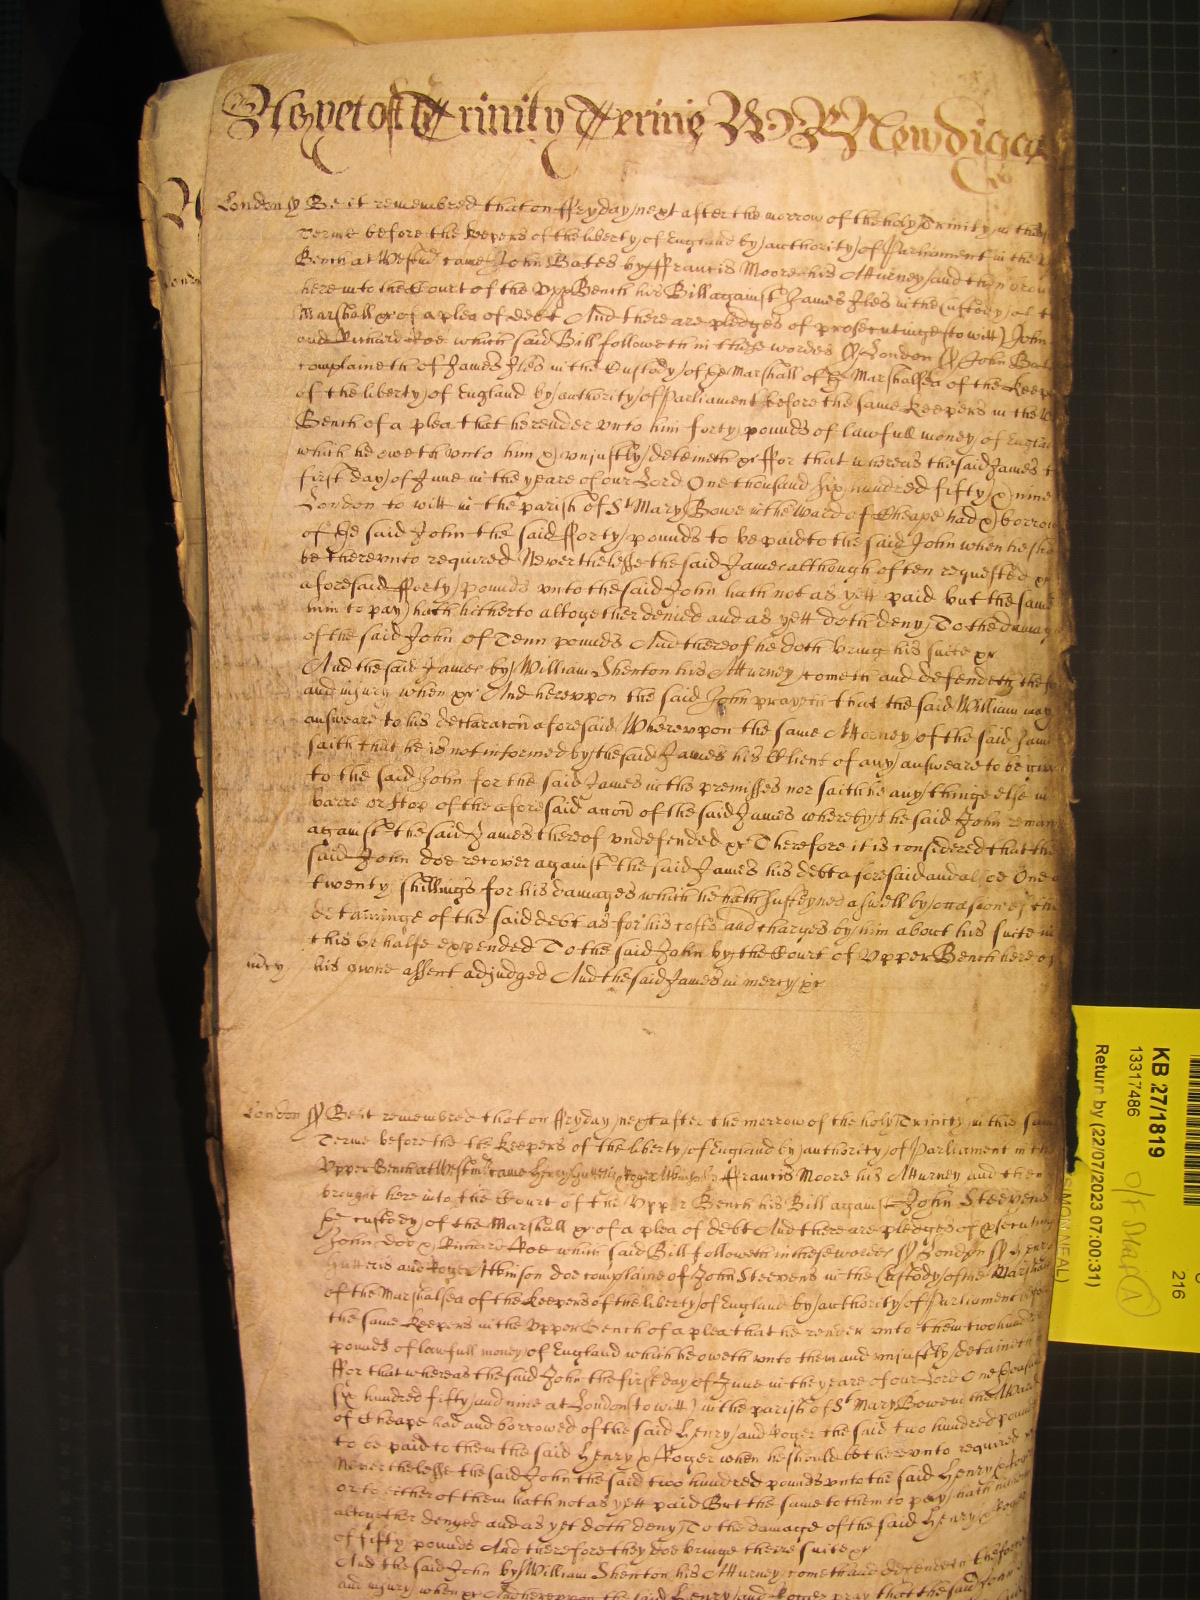 Yet of Trinity Terme W R Newdiga
London ss Be it remembred that on ffryday next after the morrow of the holy Trinity in this
Terme before the keepers of the liberty of England by authority of Parliament in the
Bench at Westmr came John Bates by ffrancis Moore his Atturney and then brou
here into the Court of the Vpp Bench his Bill against James Iles in the Custody of t
Marshall &c of a plea of debt And there are pledges of prosecutinge (to witt) John
and Richard Roe which said Bill followeth in these wordes ss London ss John Bat
complaineth of James Iles in the Custody of the Marshall of the Marshalsea of the Keep
of the liberty of England by authority of Parliament before the same Keepers in the V
Bench of a plea that he render vnto him forty pounds of lawfull money of Englan
which he oweth vnto him & vniustly deteineth &c ffor that whereas the said James t
first day of June in the yeare of our Lord One thousand six hundred fifty & nine
London to witt in the parish of St Mary Bowe in the Ward of Cheape had & borrow
of the said John the said fforty pounds to be paid to the said John when he sho
be therevnto required Neverthelesse the said James although often requested &c
aforesaid fforty pounds vnto the said John hath not as yett paid but the same
him to pay hath hitherto altogether denied and as yett doth deny To the damag
of the said John of Tenn pounds And thereof he doth bring his suite &c
And the said James by William Shenton his Atturney cometh and defendeth the fo
and iniury when &c And herevpon the said John prayeth that the said William may
answeare to his declaracon aforesaid Wherevpon the same Attorney of the said Jam
saith that he is not informed by the said James his Client of any answeare to be giv
to the said John for the said James in the premisses nor saith he any thinge else in
barre or stop of the aforesaid accon of the said James whereby the said John remay
against the said James thereof vndefended &c Therefore it is considered that the
said John doe recover against the said James his debt aforesaid and alsoe One
twenty shillings for his damages which he hath susteyned aswell by occasion of the
detaininge of the said debt as for his costs and charges by him about his suite in
this behalfe expended To the said John by the Court of Vpper Bench here of
mcy his owne assent adjudged And the said James in mercy &c
London ss Be it remembred that on ffryday next after the morrow of the holy Trinity in this sam
Terme before the the keepers of the liberty of England by authority of Parliament in the
Vpper Bench at Westmr came Henry Gutteris & Roger Atkinson by ffrancis Moore his Atturney and then
brought here into the Court of the Vpper Bench his Bill against John Steevens
the custody of the Marshall &c of a plea of debt And there are pledges of prosecuting
John doe & Richard Roe which said Bill followeth in these wordes ss London ss Henry
Gutteris and Roger Atkinson doe complaine of John Steevens in the Custody of the Marshall
of the Marshalsea of the Keepers of the liberty of England by authority of Parliament before
the same Keepers in the Vpper Bench of a plea that he render vnto them two hundred
pounds of lawfull money of England which he oweth vnto them and vniustly detaineth
ffor that whereas the said John the first day of June in the yeare of our Lord One thousand
six hundred fifty and nine at London (to witt) in the parish of St Mary Bowe in the Ward
of Cheape had and borrowed of the said Henry and Roger the said two hundred pounds
to be paid to them the said Henry & Roger when he should be therevnto required
Neverthelesse the said John the said two hundred pounds vnto the said Henry & Rog
or to either of them hath not as yett paid But the same to them to pay hath hitherto
altogether denyed and as yet doth deny To the damage of the said Henry & Roger
of fifty pounds And therefore they doe bringe there suite &c
And the said John by William Shenton his Atturney cometh and defendeth the force
and iniury when &c And herevpon the said Henry and Roger pray that the said
KB 27/1819
13317486
Return by (22/07/2023 07:00:31)
SIMON NEAL)
216